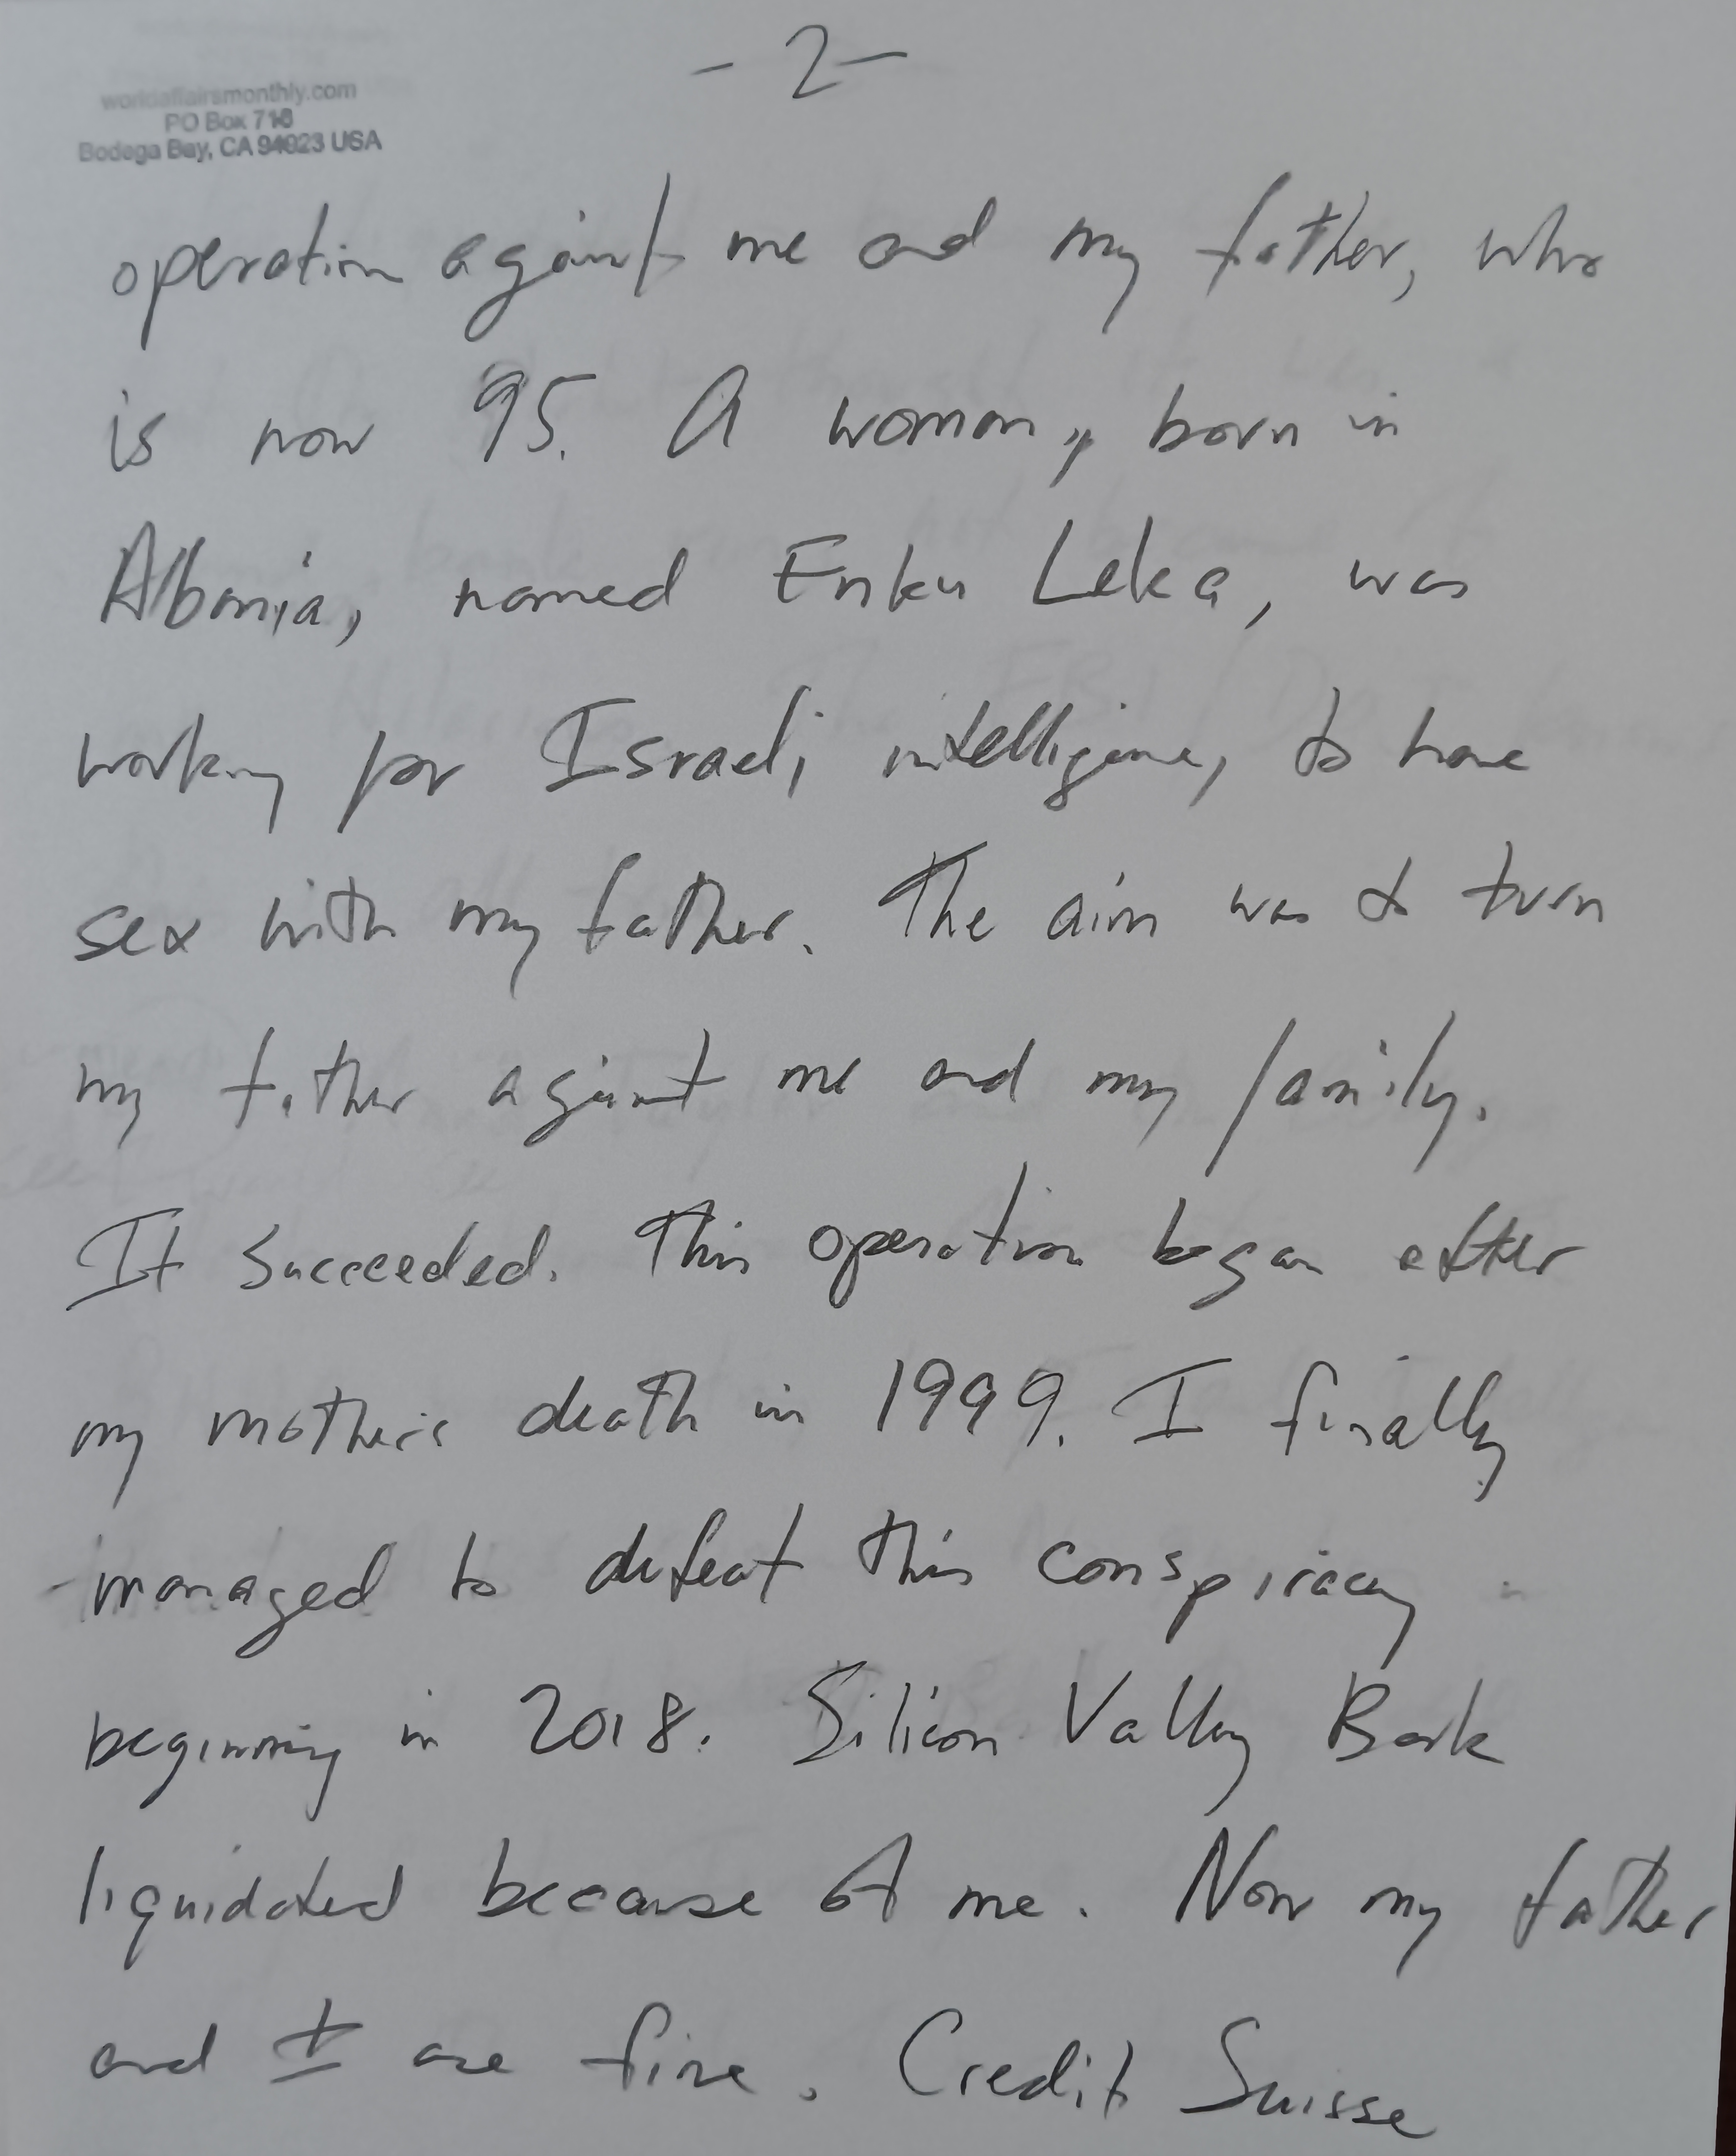 -2-
worldaffairsmonthly.com
PO Box 718
Bodega Bay, CA 94923 USA
operation against me and my father, who
is now 95. A woman, born in
Albania, named Enku Leka, was
working for Israeli intelligence, to have
sex with my father. The aim was to turn
my father against me and my family.
It succeeded. This operation began after
my mother's death in 1999. I finally
managed to defeat this conspiracy
beginning in 2018. Silicon Valley Bank
liquidated because of me. Now my father
and I are fine. Credit Suisse